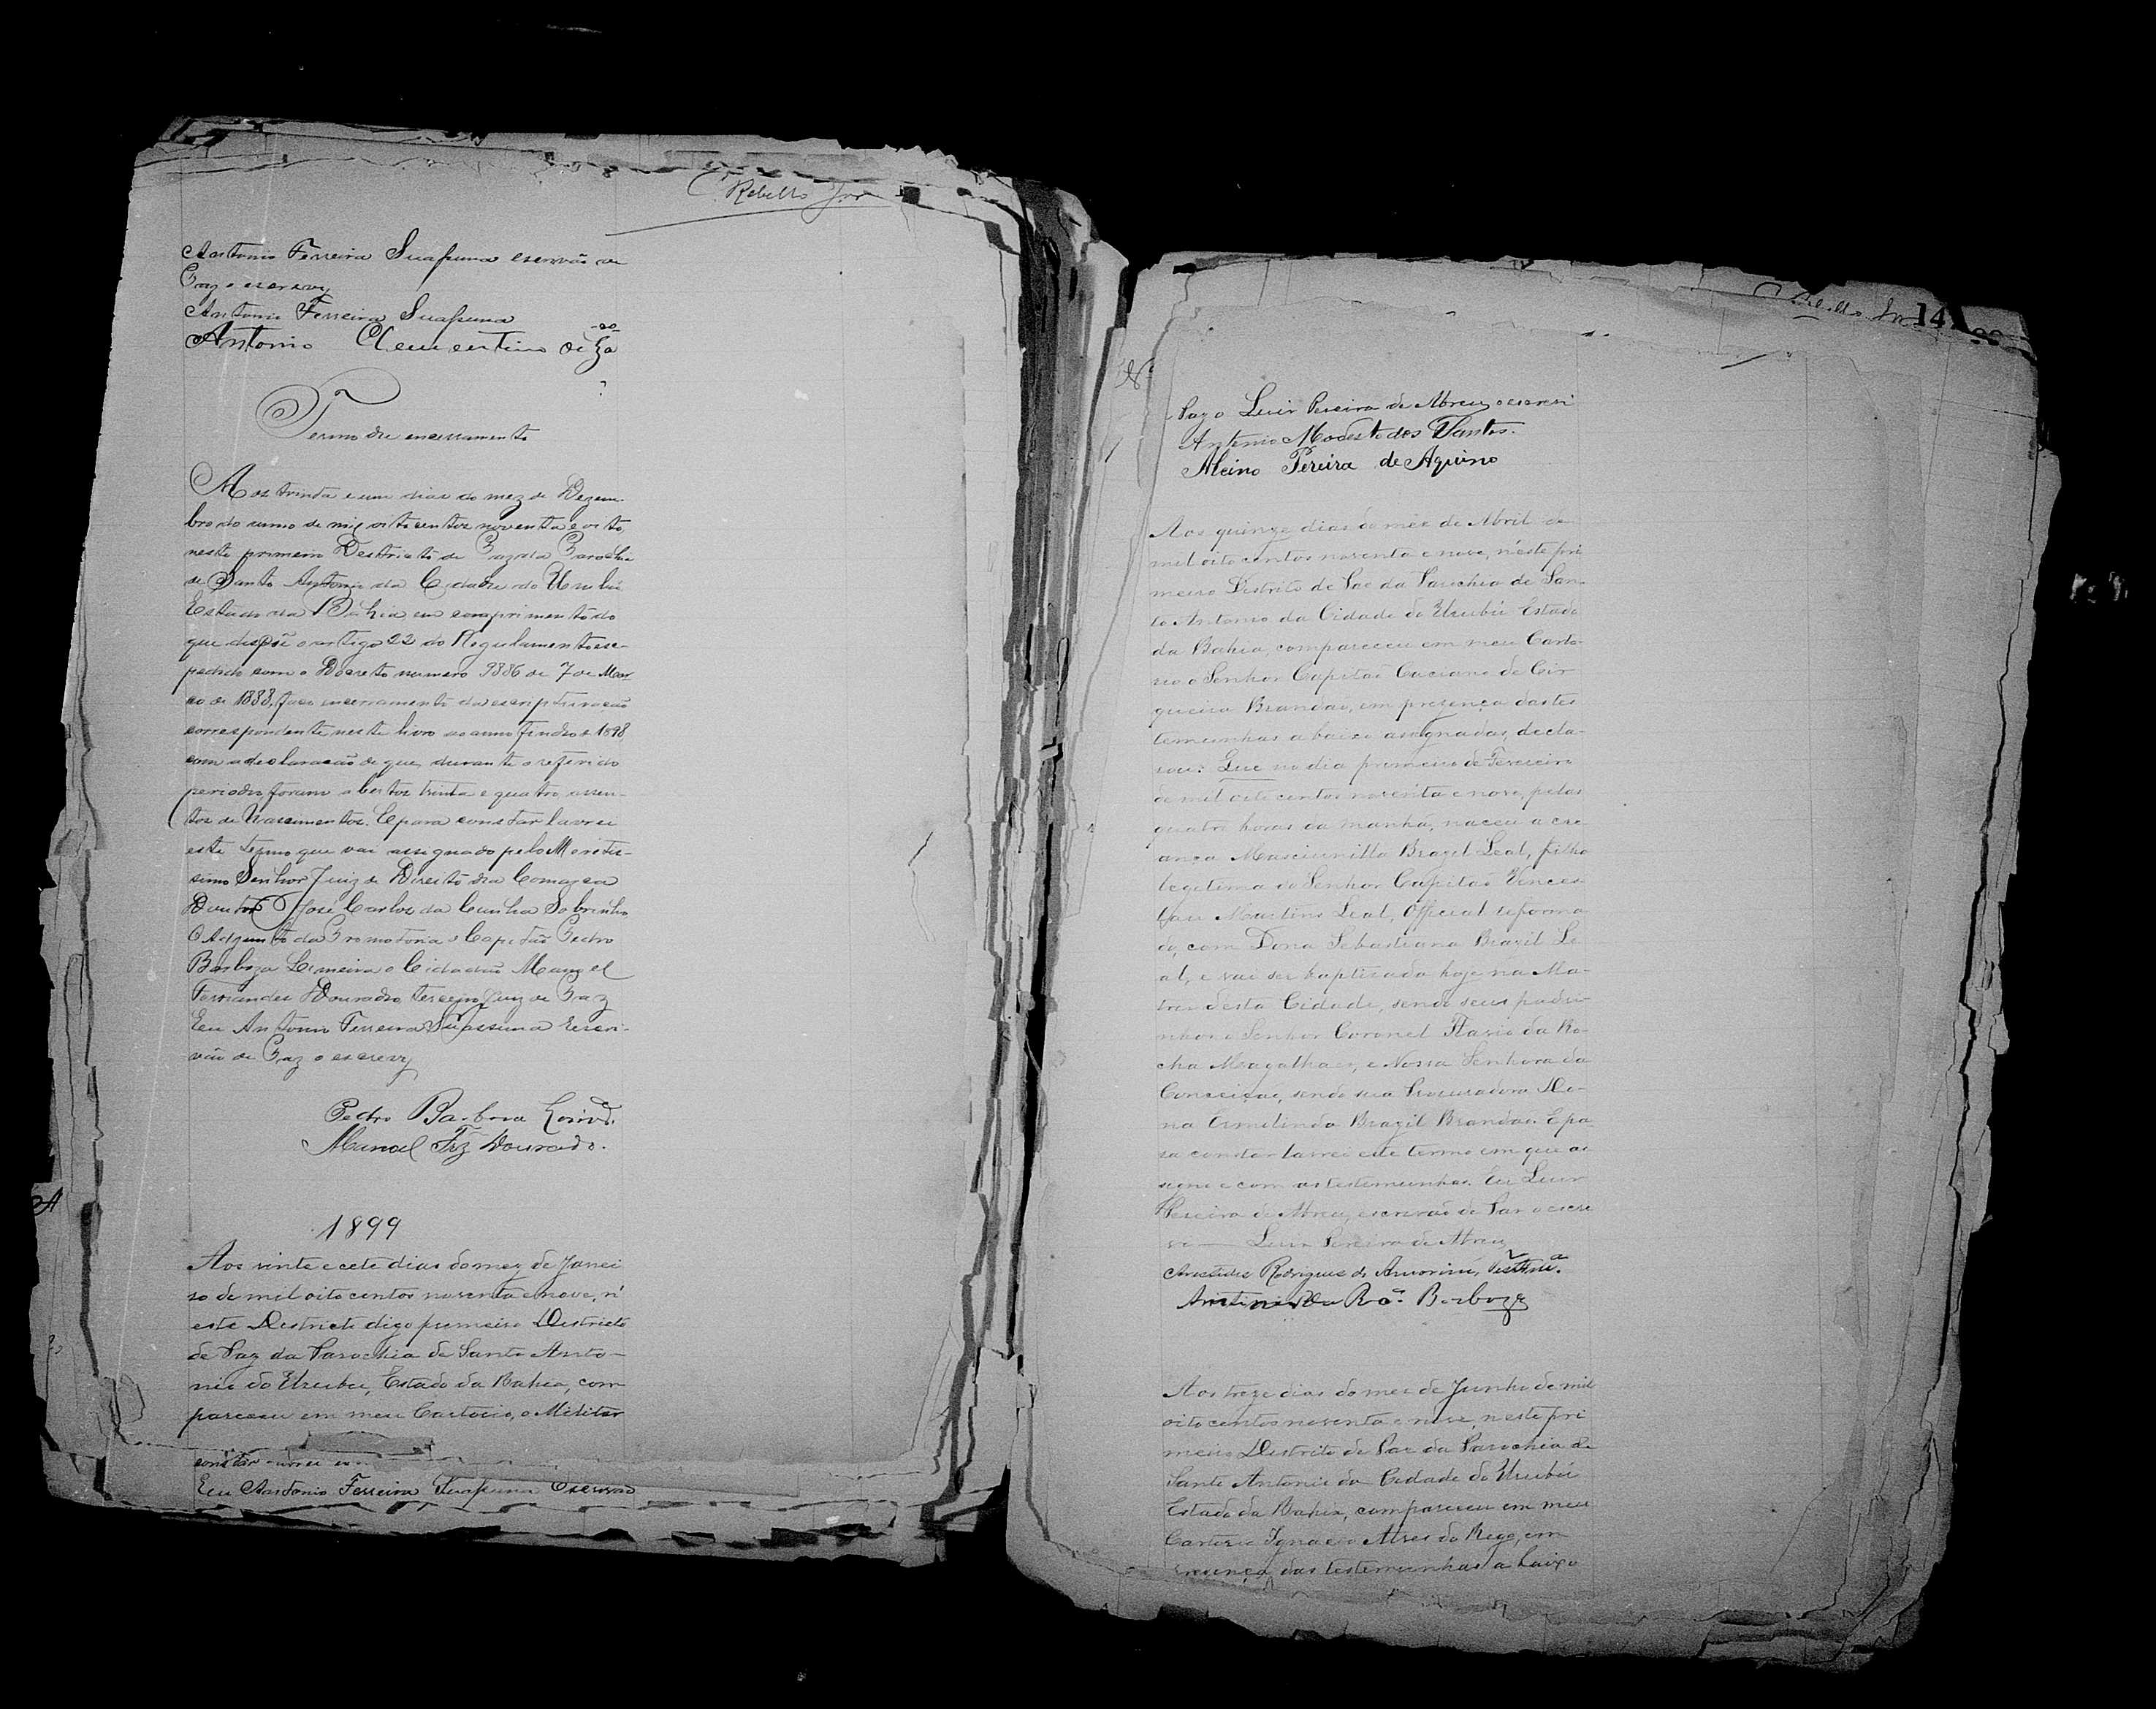 C. Rebello Jor
Antonio Ferreira Suassuna escrivão de
Paz o escrevy
Antonio Ferreira Suassuna
Antonio Clementino
Termo de encerramento
Aos trinta e um dias do mez de Dezem-
bro do anno de mil oitocentos noventa e oito,
neste primeiro Destricto de Paz da Parochia
de Santo Antonio da Cidade do Urubú
Estado da Bahia em comprimento do
que dispõe o artigo 22 do Regulamento ex-
pedido com o Decreto numero 9886 de 7 de Mar
ço de 1888, faço encerramento da escripturação
correspondente neste livro ao anno findo de 1898,
com a declaração de que durante o referido
periodo foram abertos trinta e quatro assen-
tos de Nascimentos. E para constar lavrei
este termo que vai assignado pelo Meretis-
simo Senhor Juiz de Direito da Comarca
Doutor José Carlos da Cunha Sobrinho
O Adjunto da Promotoria o Capitão Pedro
Barboza o Cidadão Manoel
Fernandes Dourado, terceiro Juiz de Paz
Eu Antonio Ferreira Suassuna Escri-
vão de Paz o escrevy
Pedro Barboza
Manoel Frz Dourado.
1899
Aos vinte e cete dias do mez de Janei
ro de mil oito centos noventa e nove, n'
este Districto digo primeiro Districto
de Paz da Parochia de Santo Anto-
nio do Urubu, Estado da Bahia, com
pareceu em meu Cartorio, o Militar
constar
Eu Antonio Ferreira Suassuna Escrivão
14
Paz o Luiz Pereira de Abreu, o escrevi
Antonio Modesto dos Santos.
Alcino Pereira de Aquino
Aos quinze dias do mez de Abril de
mil oito centos noventa e nove, n'este pri
meiro Districto de Paz da Parochia de San-
to Antonio da Cidade do Urubú Estado
da Bahia, compareceu em meu Carto-
rio o Senhor Capitão Caciano de Cir
queira Brandão, em presença das tes
temunhas abaixo assignadas, decla-
rou: Que no dia primeiro de Fevereiro
de mil oito centos noventa e nove, pelas
quatro horas da manhã, naceu a cre
ança Brazil Leal, filho
legetimo do Senhor Capitão Vences
lau Martins Leal, Official reforma
do, com Dona Sebastiana Brazil Le
al, e vai ser baptisada hoje na Ma-
triz desta Cidade, sendo seus padri-
nhos o Senhor Coronel Flavio da Ro-
cha Magalhães, e Nossa Senhora da
Conceição, sendo sua Procuradora Do-
na Ermelinda Brazil Brandão. E pa-
ra constar lavrei este termo em que as
signo e com as testemunhas. Eu Luiz
Pereira de Abreu, escrivão de Paz o escre
vi Luiz Pereira de Abreu
Rodrigues de Amorim,
Barboza
Aos treze dias do mez de Junho de mil
oito centos noventa e nove, neste pri
meiro Districto de Paz da Parochia de
Santo Antonio da Cidade do Urubú
Estado da Bahia, compareceu em meu
Cartorio Ignacio Alves do Rego, em
presença das testemunhas a baixo